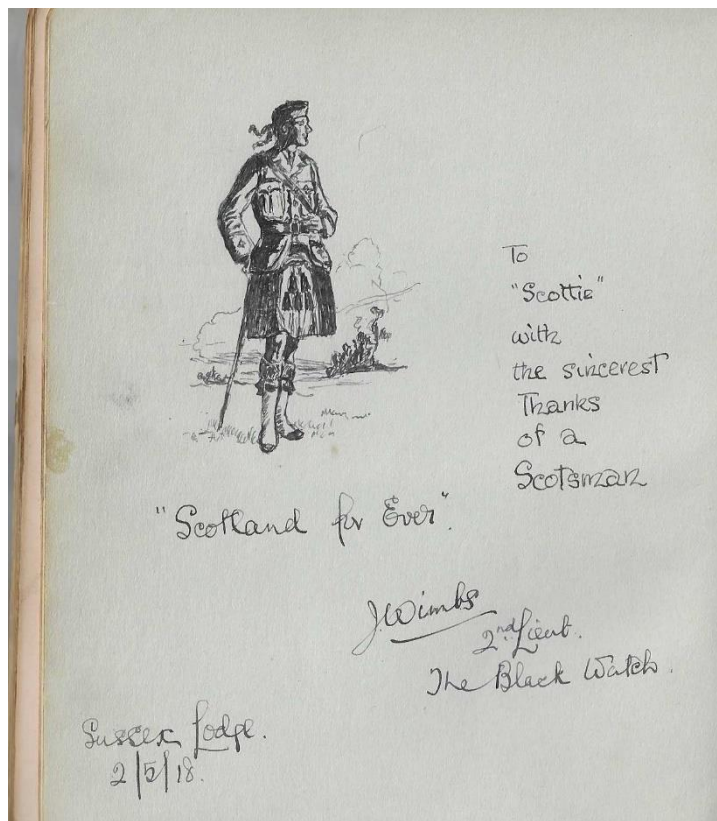 To
"Scottie"
with
the sincerest
Thanks
of a
Scotsman
"Scotland for Ever".
J Wimbs
2nd Lieut.
The Black Watch.
Sussex Lodge.
2/5/18.